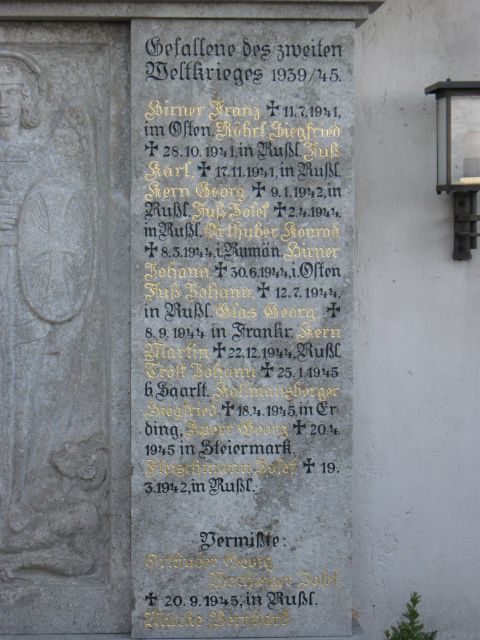 Gefallene des zweiten
Weltkrieges 1939/45.
Birner Franz ✝ 11.7.1941,
im Osten. Röhrl Siegfried
✝ 28.10.1941, in Rußl. Fuß
Karl. ✝ 17.11.1941, in Rußl.
Kern Georg ✝ 9.1.1942, in
Rußl. Fuß Josef ✝ 2.4.1944,
in Rußl. Orthuber Konrad
✝ 8.3.1944, i. Rumän. Birner
Johann ✝ 30.6.1944, i. Osten
Fuß Johann ✝ 12.7.1944,
in Rußl. Glas Georg, ✝
8.9.1944 in Frankr. Kern
Martin ✝ 22.12.1944, Rußl.
Trost Johann ✝ 25.1.1945
b Saarlt. Kallmansberger
Siegfried ✝ 18.4.1945, in Er-
ding, Sperr Georg ✝ 20.4.
1945 in Steiermark.
Fleischmann Josef ✝ 19.
3.1942, in Rußl.
Vermißte:
Orthuber Georg
Josf.
✝ 20.9.1945, in Rußl.
Mücke Bernhard